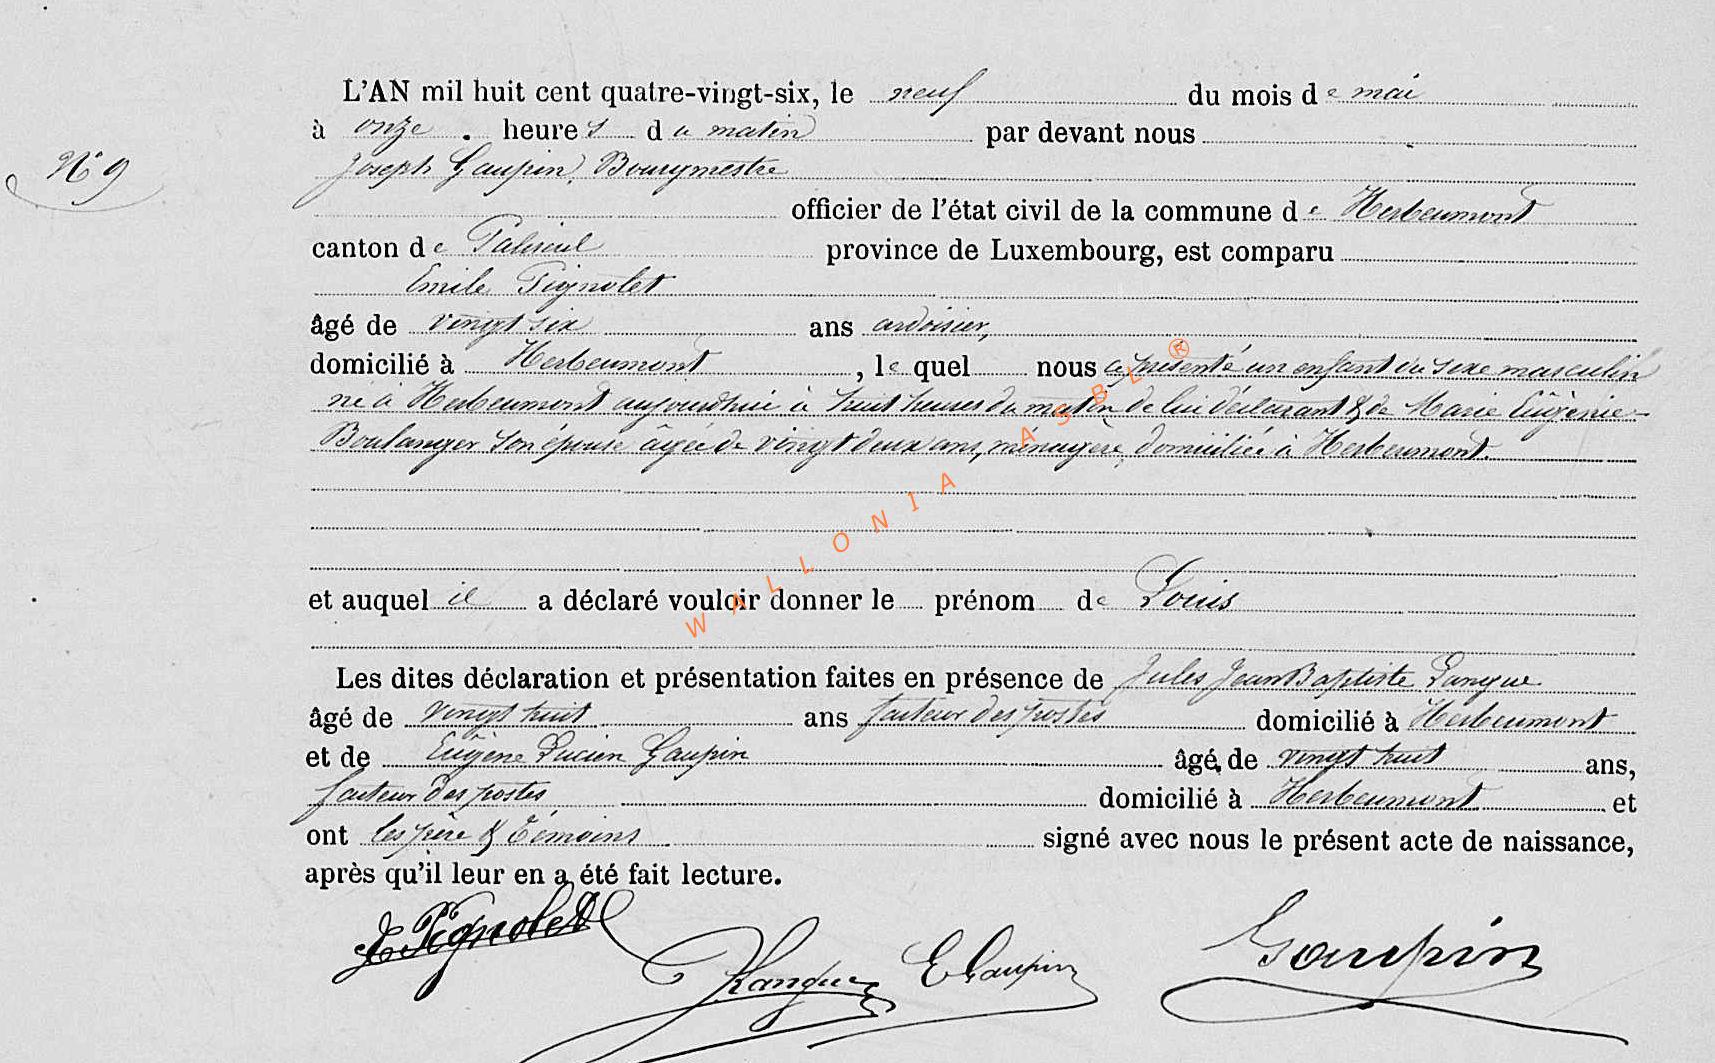 L'AN mil huit cent quatre-vingt-six, le neuf du mois de mai
à onze heures du matin par devant nous
N° 9
Joseph Gaupin, Bourgmestre
officier de l'état civil de la commune de Herbeumont
canton de Paliseul province de Luxembourg, est comparu
Emile Pignolet
âgé de vingt six ans ardoisier,
domicilié à Herbeumont, lequel nous a présenté un enfant du sexe masculin
né à Herbeumont aujourd'hui à huit heures du matin de lui déclarant & de Marie Eugènie
Boulanger son épouse âgée de vingt deux ans, ménagère, domiciliée à Herbeumont.
et auquel il a déclaré vouloir donner le prénom de Louis
Les dites déclaration et présentation faites en présence de Jules Jean Baptiste Langue
âgé de vingt huit ans facteur des postes domicilié à Herbeumont
et de Eugène Lucien Gaupin âgé de vingt huit ans,
facteur des postes domicilié à Herbeumont et
ont les père & Témoins signé avec nous le présent acte de naissance,
après qu'il leur en a été fait lecture.
E Pignolet
JLangue
E Gaupin
Gaupin
WALLONIA ASBL®